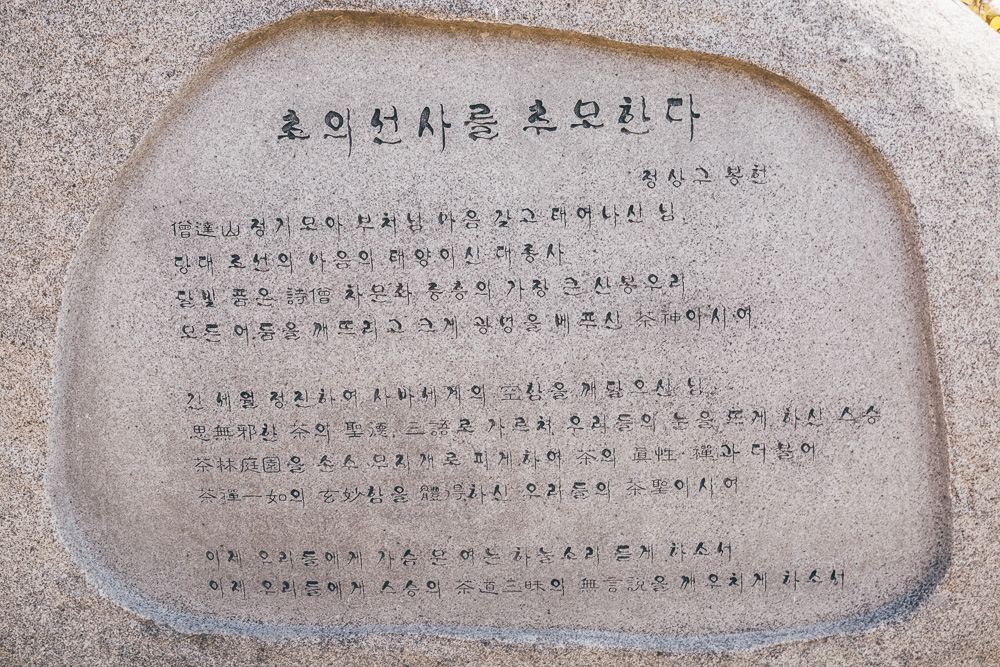 초의선사를 추모한다
정상구 봉헌
僧達山 정기 모아 부처님 마음 갖고 태어나신 님.
당대 조선의 마음의 태양이신 대종사
달빛 품은 詩僧 차문화 중흥의 가장 큰 산봉우리
모든 어둠을 깨뜨리고 크게 광명을 베푸신 茶神이시여
긴 세월 정진하여 사바세계의 空함을 깨달으신 님.
思無邪한 茶의 聖德, 三語로 가르쳐 우리들의 눈을 뜨게 하신 스승
茶林庭園을 손수 무지개로 피게하여 茶의 眞性·禪과 더불어
茶禪一如의 玄妙함을 體得하신 우리들의 茶聖이시여
이제 우리들에게 가슴 문 여는 하늘소리 듣게 하소서
이제 우리들에게 스승의 茶道三昧의 無言說을 깨우치게 하소서